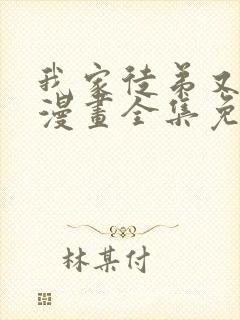 我家徒弟又
漫畫全集免
林某付